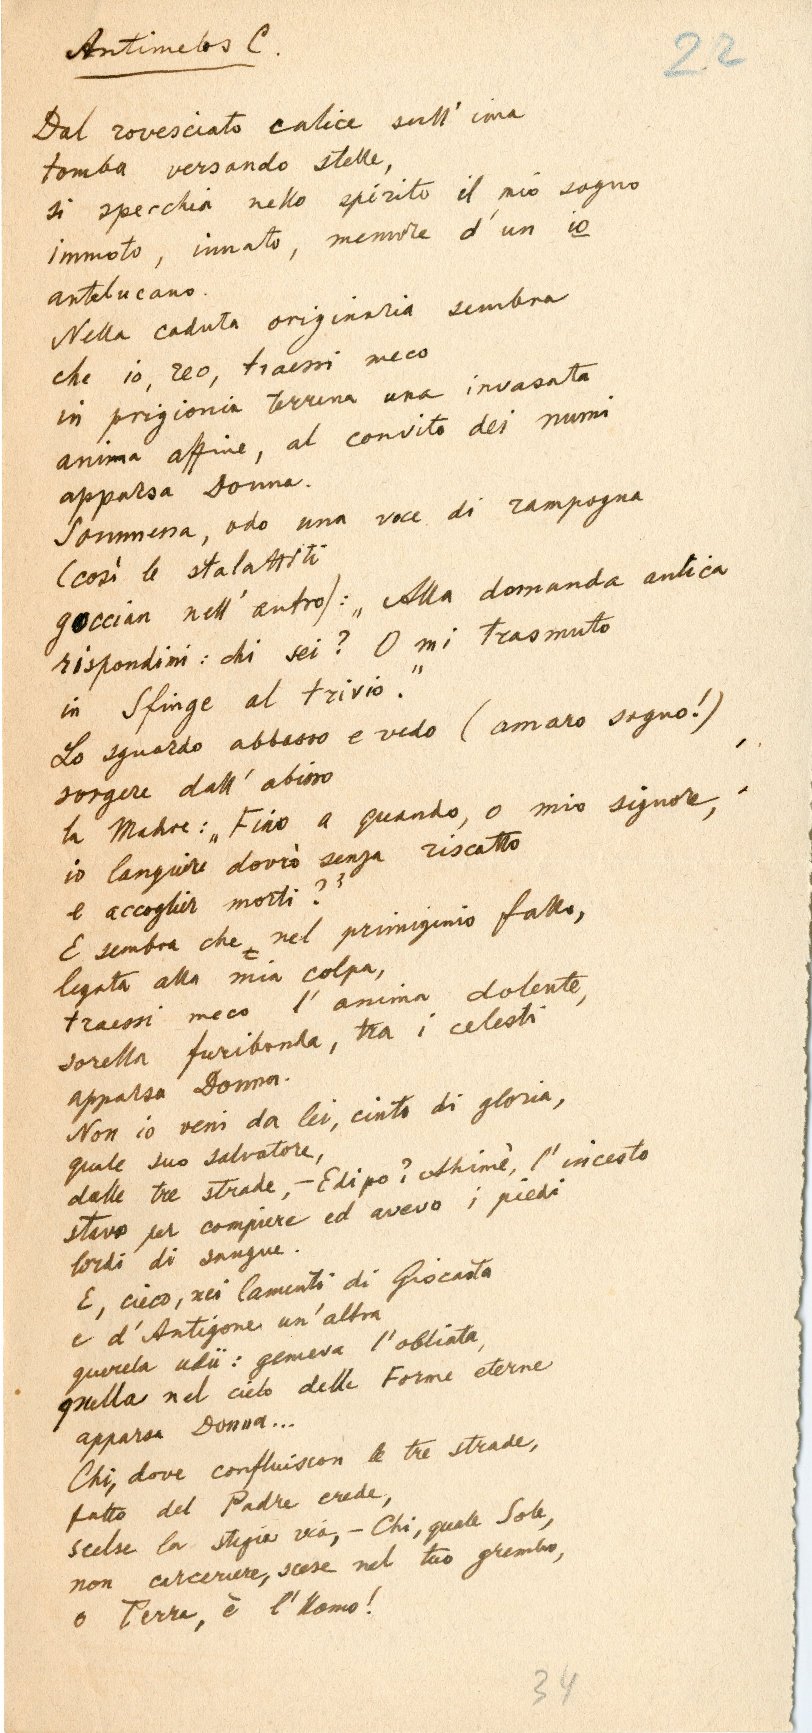 Antimelos C.
22
Dal rovesciato calice sull' ima
tomba versando stelle,
si specchia nello spirito il mio sogno
immoto, innato, memore d'un io
antelucano.
Nella caduta originaria sembra
che io, reo, traessi meco
in prigionia terrena una invasata
anima affine, al convito dei numi
apparsa Donna.
Sommessa, odo una voce di rampogna
(così le stalattiti
goccian nell' antro): „Alla domanda antica
rispondimi: chi sei? O mi trasmuto
in Sfinge al trivio."
Lo sguardo abbasso e vedo (amaro sogno!)
sorgere dall' abisso
la Madre: „Fino a quando, o mio signore,
io languire dovrò senza riscatto
e accoglier morti?"
E sembra che, nel primigenio fallo,
legata alla mia colpa,
traessi meco l' anima dolente,
sorella furibonda, tra i celesti
apparsa Donna.
Non io venni da lei, cinto di gloria,
quale suo salvatore,
dalle tre strade, – Edipo? Ahimè, l' incesto
stavo per compiere ed avevo i piedi
lordi di sangue.
E, cieco, nei lamenti di Giocasta
e d'Antigone un'altra
querela udii: gemeva l'obliata,
quella nel cielo delle Forme eterne
apparsa Donna...
Chi, dove confluiscon le tre strade,
fatto del Padre erede,
scelse la stigia via, – Chi, quale Sole,
non carceriere, scese nel tuo grembo,
o Terra, è l'Uomo!
34